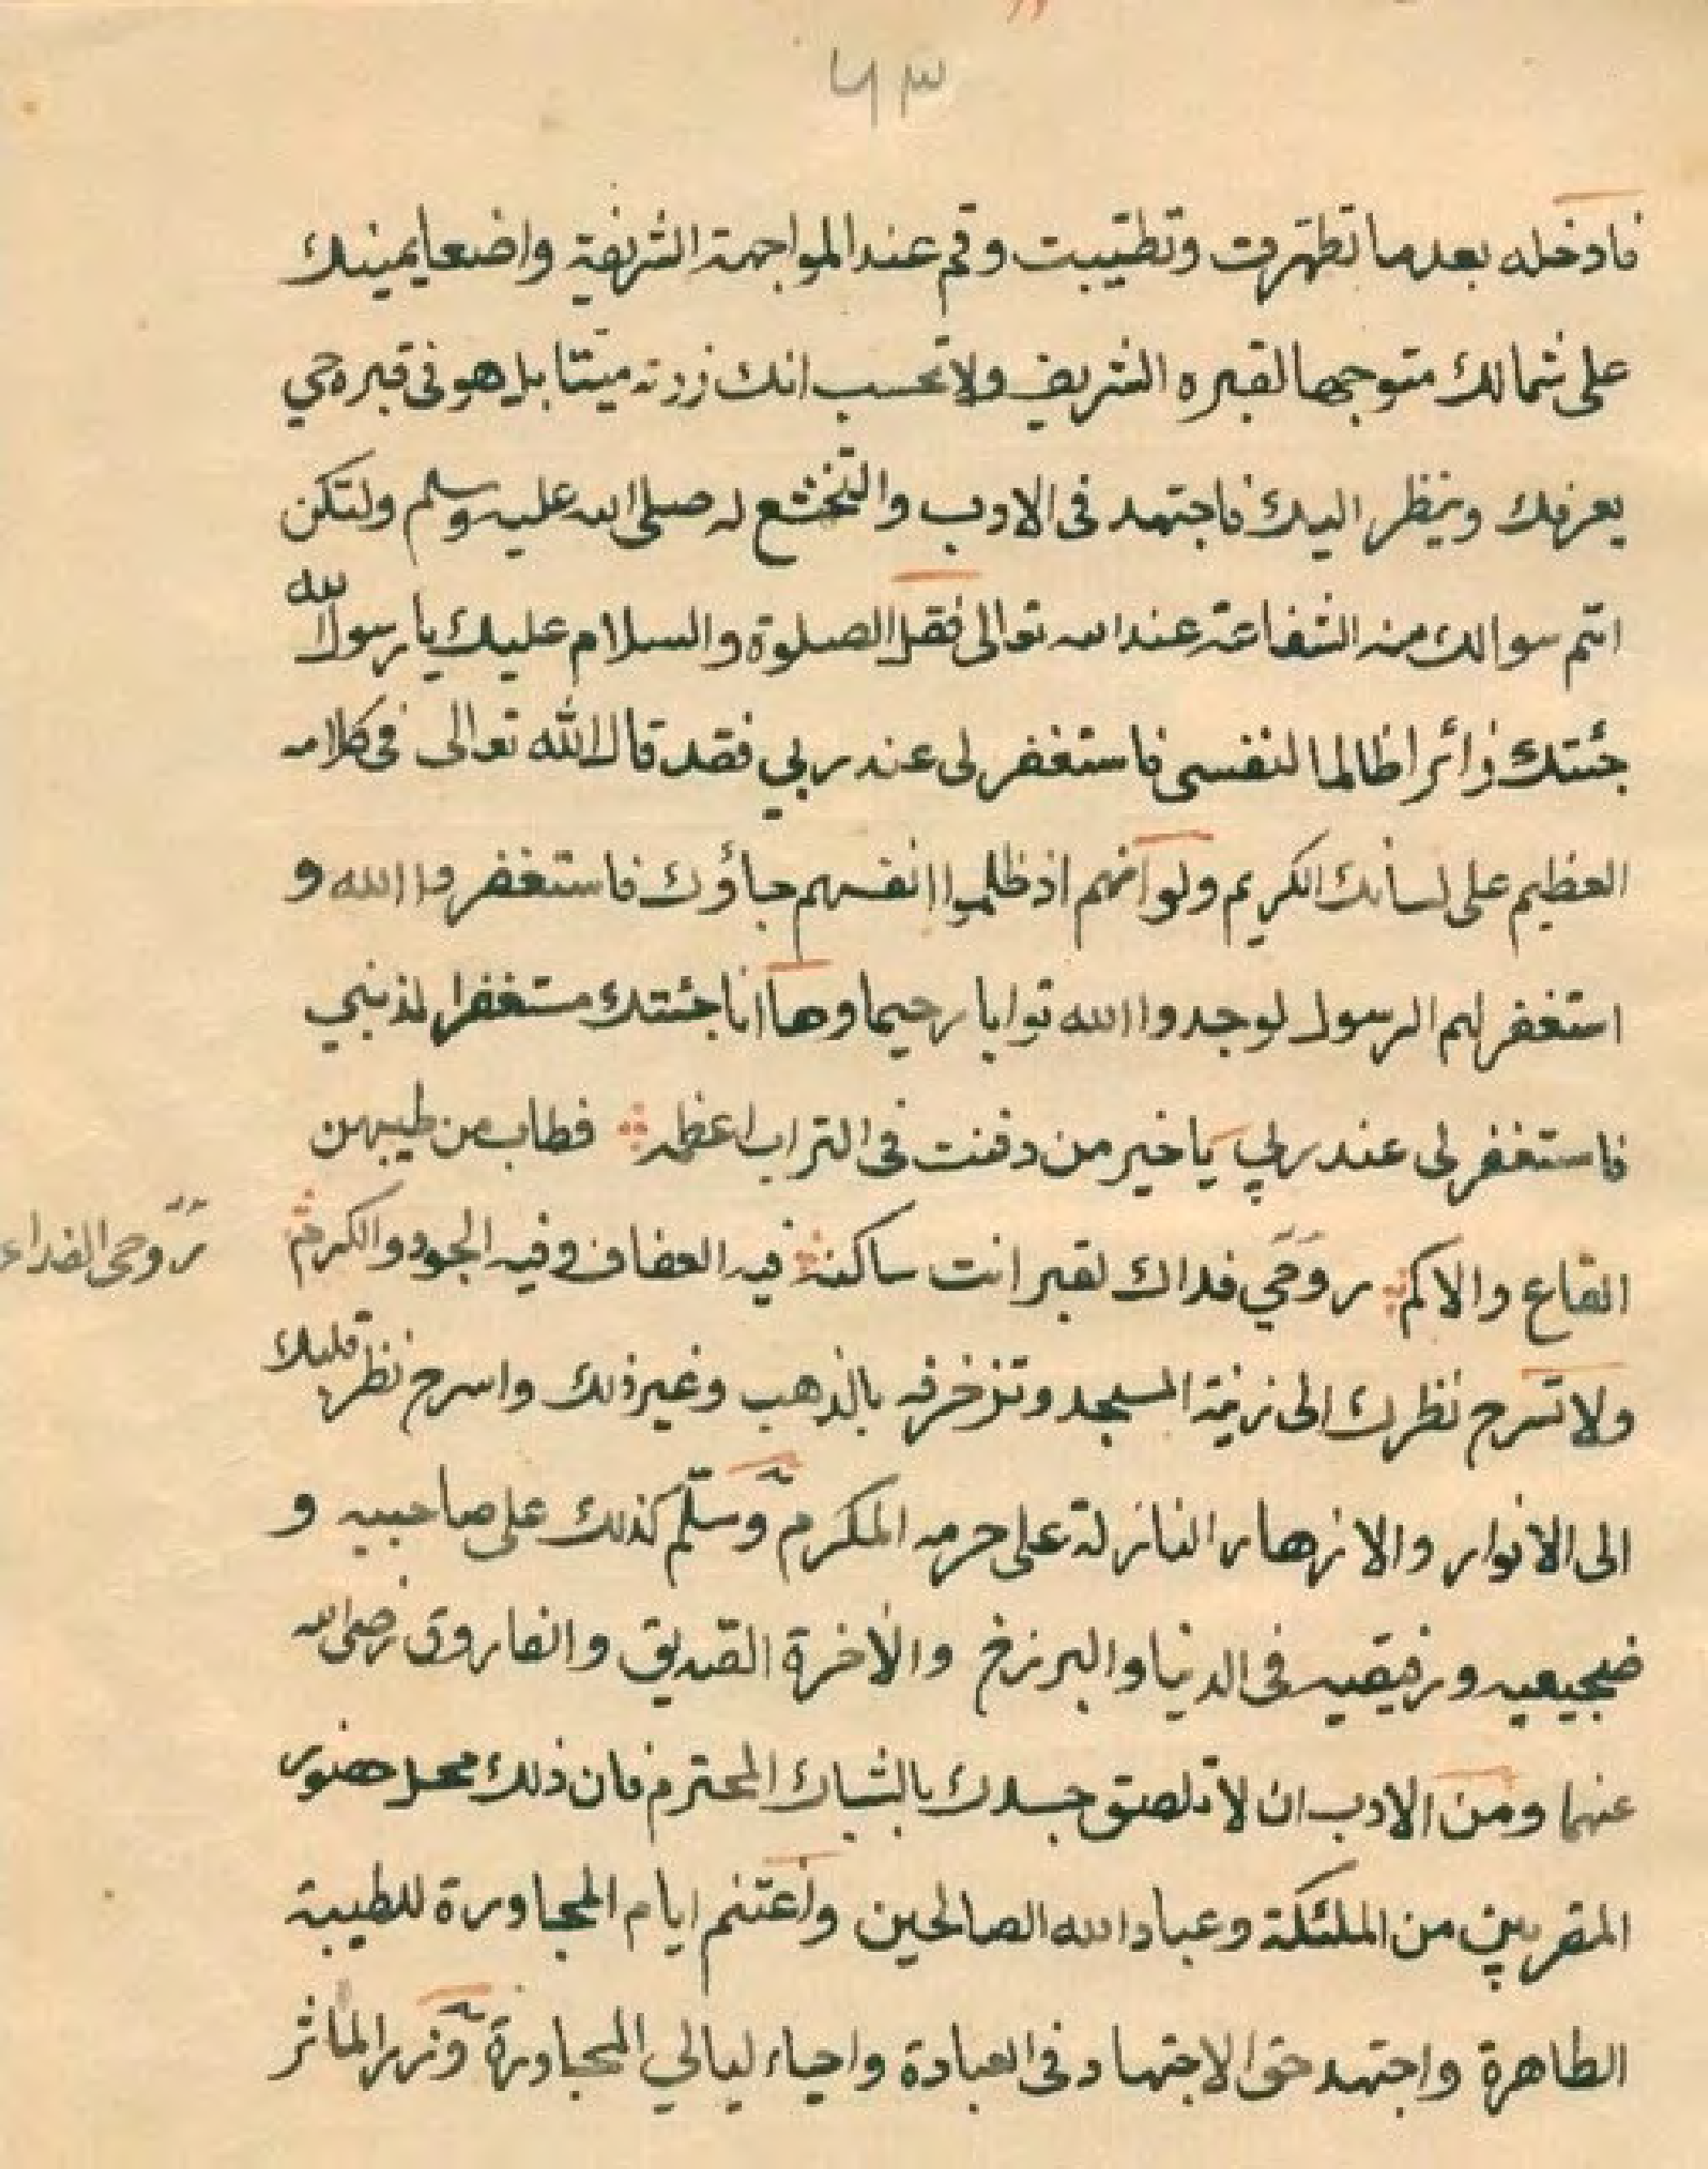 ٦٣
فادخله بعدما تطهرت وتطيبت وقم عند المواجهة الشريفة واضعا يمينك
على شمالك متوجها لقبره الشريف ولا تحسب انك زرته ميتا بل هو في قبره حي
يعرفك وينظر اليك فاجتهد فى الادب والتخشع له صلى الله عليه وسلم ولتكن
اتم سوالك منه الشفاعة عند الله تعالى فقل الصلوة والسلام عليك يا رسول الله
جئتك زائرا ظالما لنفسى فاستغفر لى عند ربي فقد قال الله تعالى فى كلامه
العظيم على لسانك الكريم ولو انهم اذ ظلموا انفسهم جاؤك فاستغفروا الله و
استغفر لهم الرسول لوجدوا الله توابا رحيما وها انا جئتك مستغفرا لذنبي
فاستغفر لى عند ربي يا خير من دفنت فى التراب اعظمه فطاب من طيبهن
القاع والاكم روحي فداك لقبر انت ساكنه فيه العفاف وفيه الجود والكرم
روحى الفداء
ولا تسرح نظرك الى زينة المسجد وتزخرفه بالذهب وغير ذلك واسرح نظر قلبك
الى الانوار والازهار النازلة على حرمه المكرم وسلّم كذلك على صاحبيه و
ضجيعيه ورفيقيه فى الدنيا والبرزخ والآخرة الصّديق والفاروق رضى الله
عنهما ومن الادب ان لا تلصق جسدك بالشباك المحترم فان ذلك محل حضور
المقربين من الملئكة وعباد الله الصالحين واغتنم ايام المجاورة للطيبة
الطاهرة واجتهد حق الاجتهاد فى العبادة واحياء ليالي المجاورة وزر المآثر